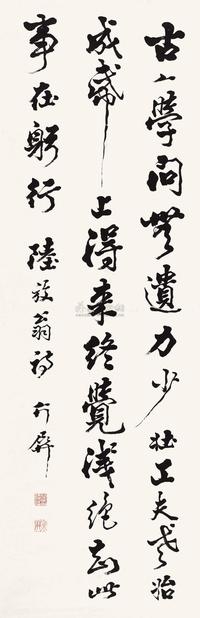 古人學問無遺力少壯工夫老始
成帋上得來終覺淺絕知此
事在躬行陸放翁詩介屏